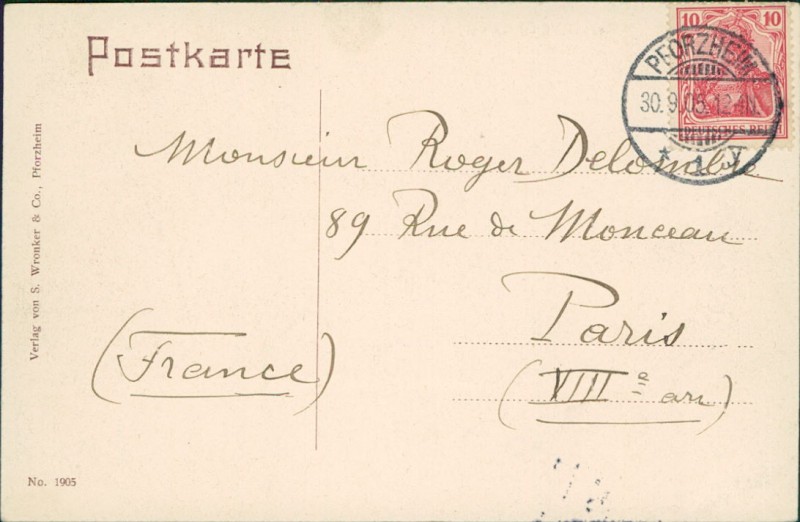 Postkarte
10 10
DEUTSCHES REICH
PFORZHEIM
30.9.05.12-1N.
* 1 V
Monsieur Roger Delombre
89 Rue de Monceau
Paris
(VIIIe arr)
(France)
Verlag von S. Wronker & Co., Pforzheim
No. 1905